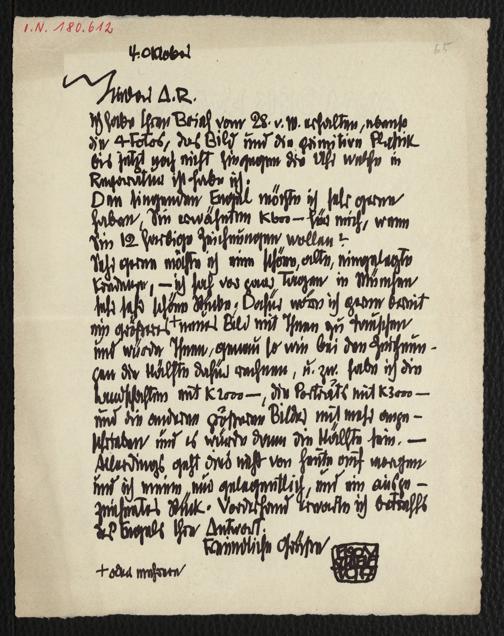 I.N. 180.612
65
4. Oktober
Lieber A.R.
ich habe Ihren Brief vom 28. v. M. erhalten, ebenso
die 4 Fotos, das Bild und die primitive Plastik
bis jetzt noch nicht hingegen die Uhr welche in
Reparatur ist habe ich.
Den singenden Engel möchte ich sehr gerne
haben, Sie erwähnten K600 — für mich, wenn
Sie 12 farbige Zeichnungen wollen?
Sehr gerne möchte ich eine schöne, alte, eingelegte
— ich sah vor paar Tagen in München
sehr sehr schöne Stücke. Dafür wäre ich gerne bereit
ein grösseres + neues Bild mit Ihnen zu tauschen
und würde Ihnen, genau so wie bei den Zeichnun-
gen die Hälfte dafür rechnen, u. zw. habe ich die
Landschaften mit K2000 —, die Porträts mit K3000 —
und die anderen grösseren Bilder mit mehr ange-
schrieben und es würde dann die Hälfte sein. —
Allerdings geht dies nicht von heute auf morgen
und ich meine nur gelegentlich, und ein ausge-
zeichnetes Stück. Vorderhand erwarte ich betreffs
des Engels Ihre Antwort.
Freundliche Grüsse
+ oder mehrere